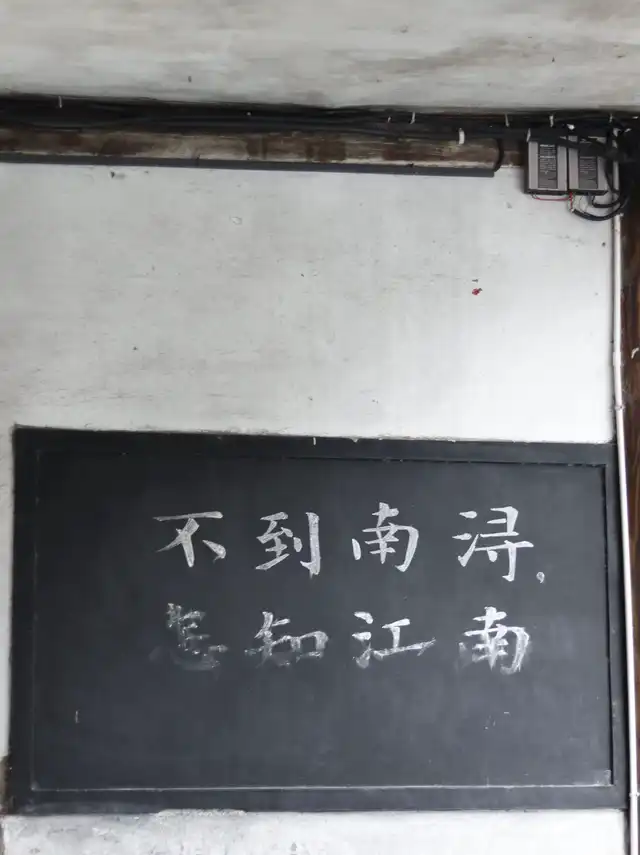 不到南浔,
怎知江南